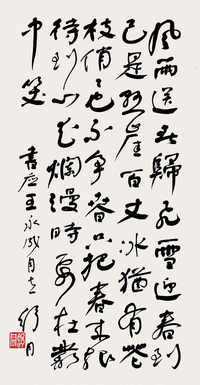 風雨送春歸飛雪迎春到
已是懸崖百丈冰猶有花
枝俏也不爭春只把春來報
待到山花爛漫時她在叢
中笑
書應王永成同志 舒同